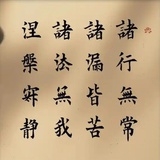 諸行無常
諸漏皆苦
諸法無我
涅槃寂静